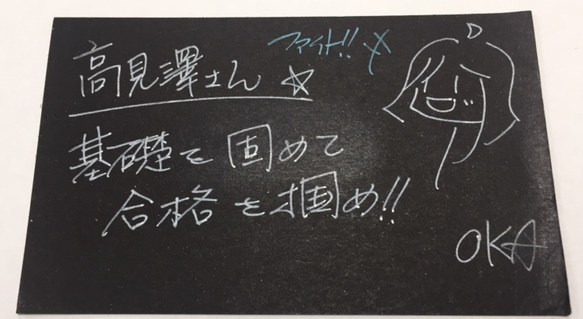 高見澤さん☆
ファイト!!
基礎を固めて
合格を掴め!!
OKA